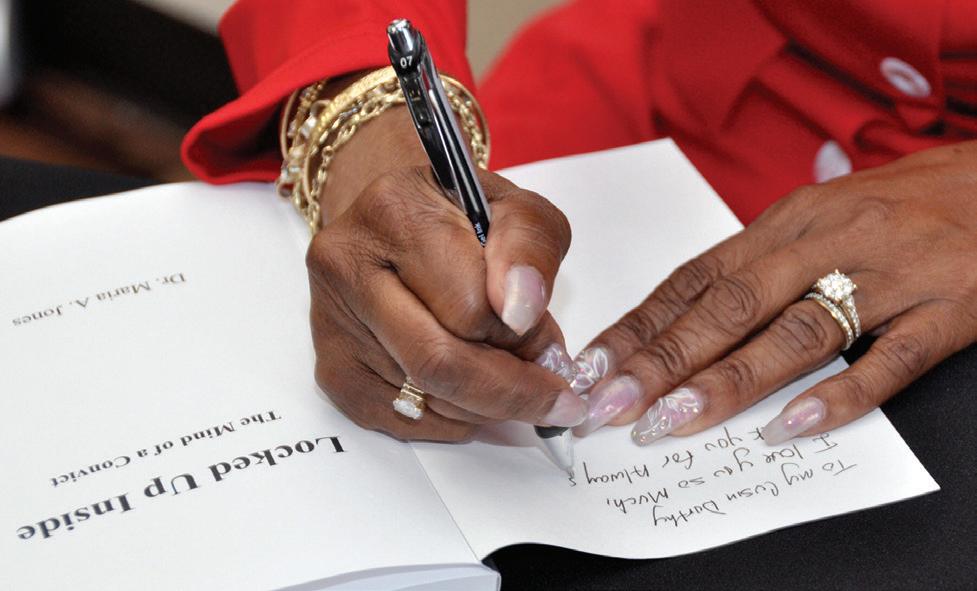 To my Cusin Dorthy
I love you so Much,
you for Always
Locked Up Inside
The Mind of a Convict
Dr. Maria A. Jones
07
Gel Ink